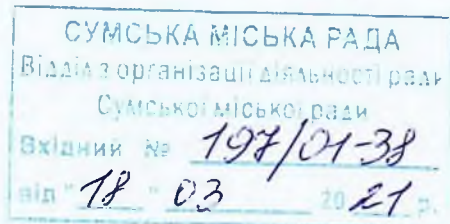 СУМСЬКА МІСЬКА РАДА
Відділ з організації діяльності ради
Сумської міської ради
Вхідний № 197/01-38
від "18" 03 2021 р.